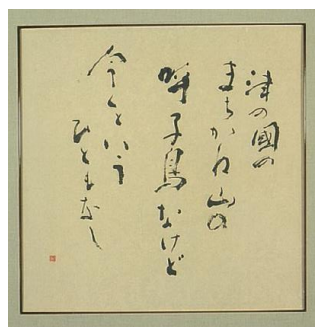 津の國の
まちかね山の
呼子鳥なけど
今くといふ
ひともなし